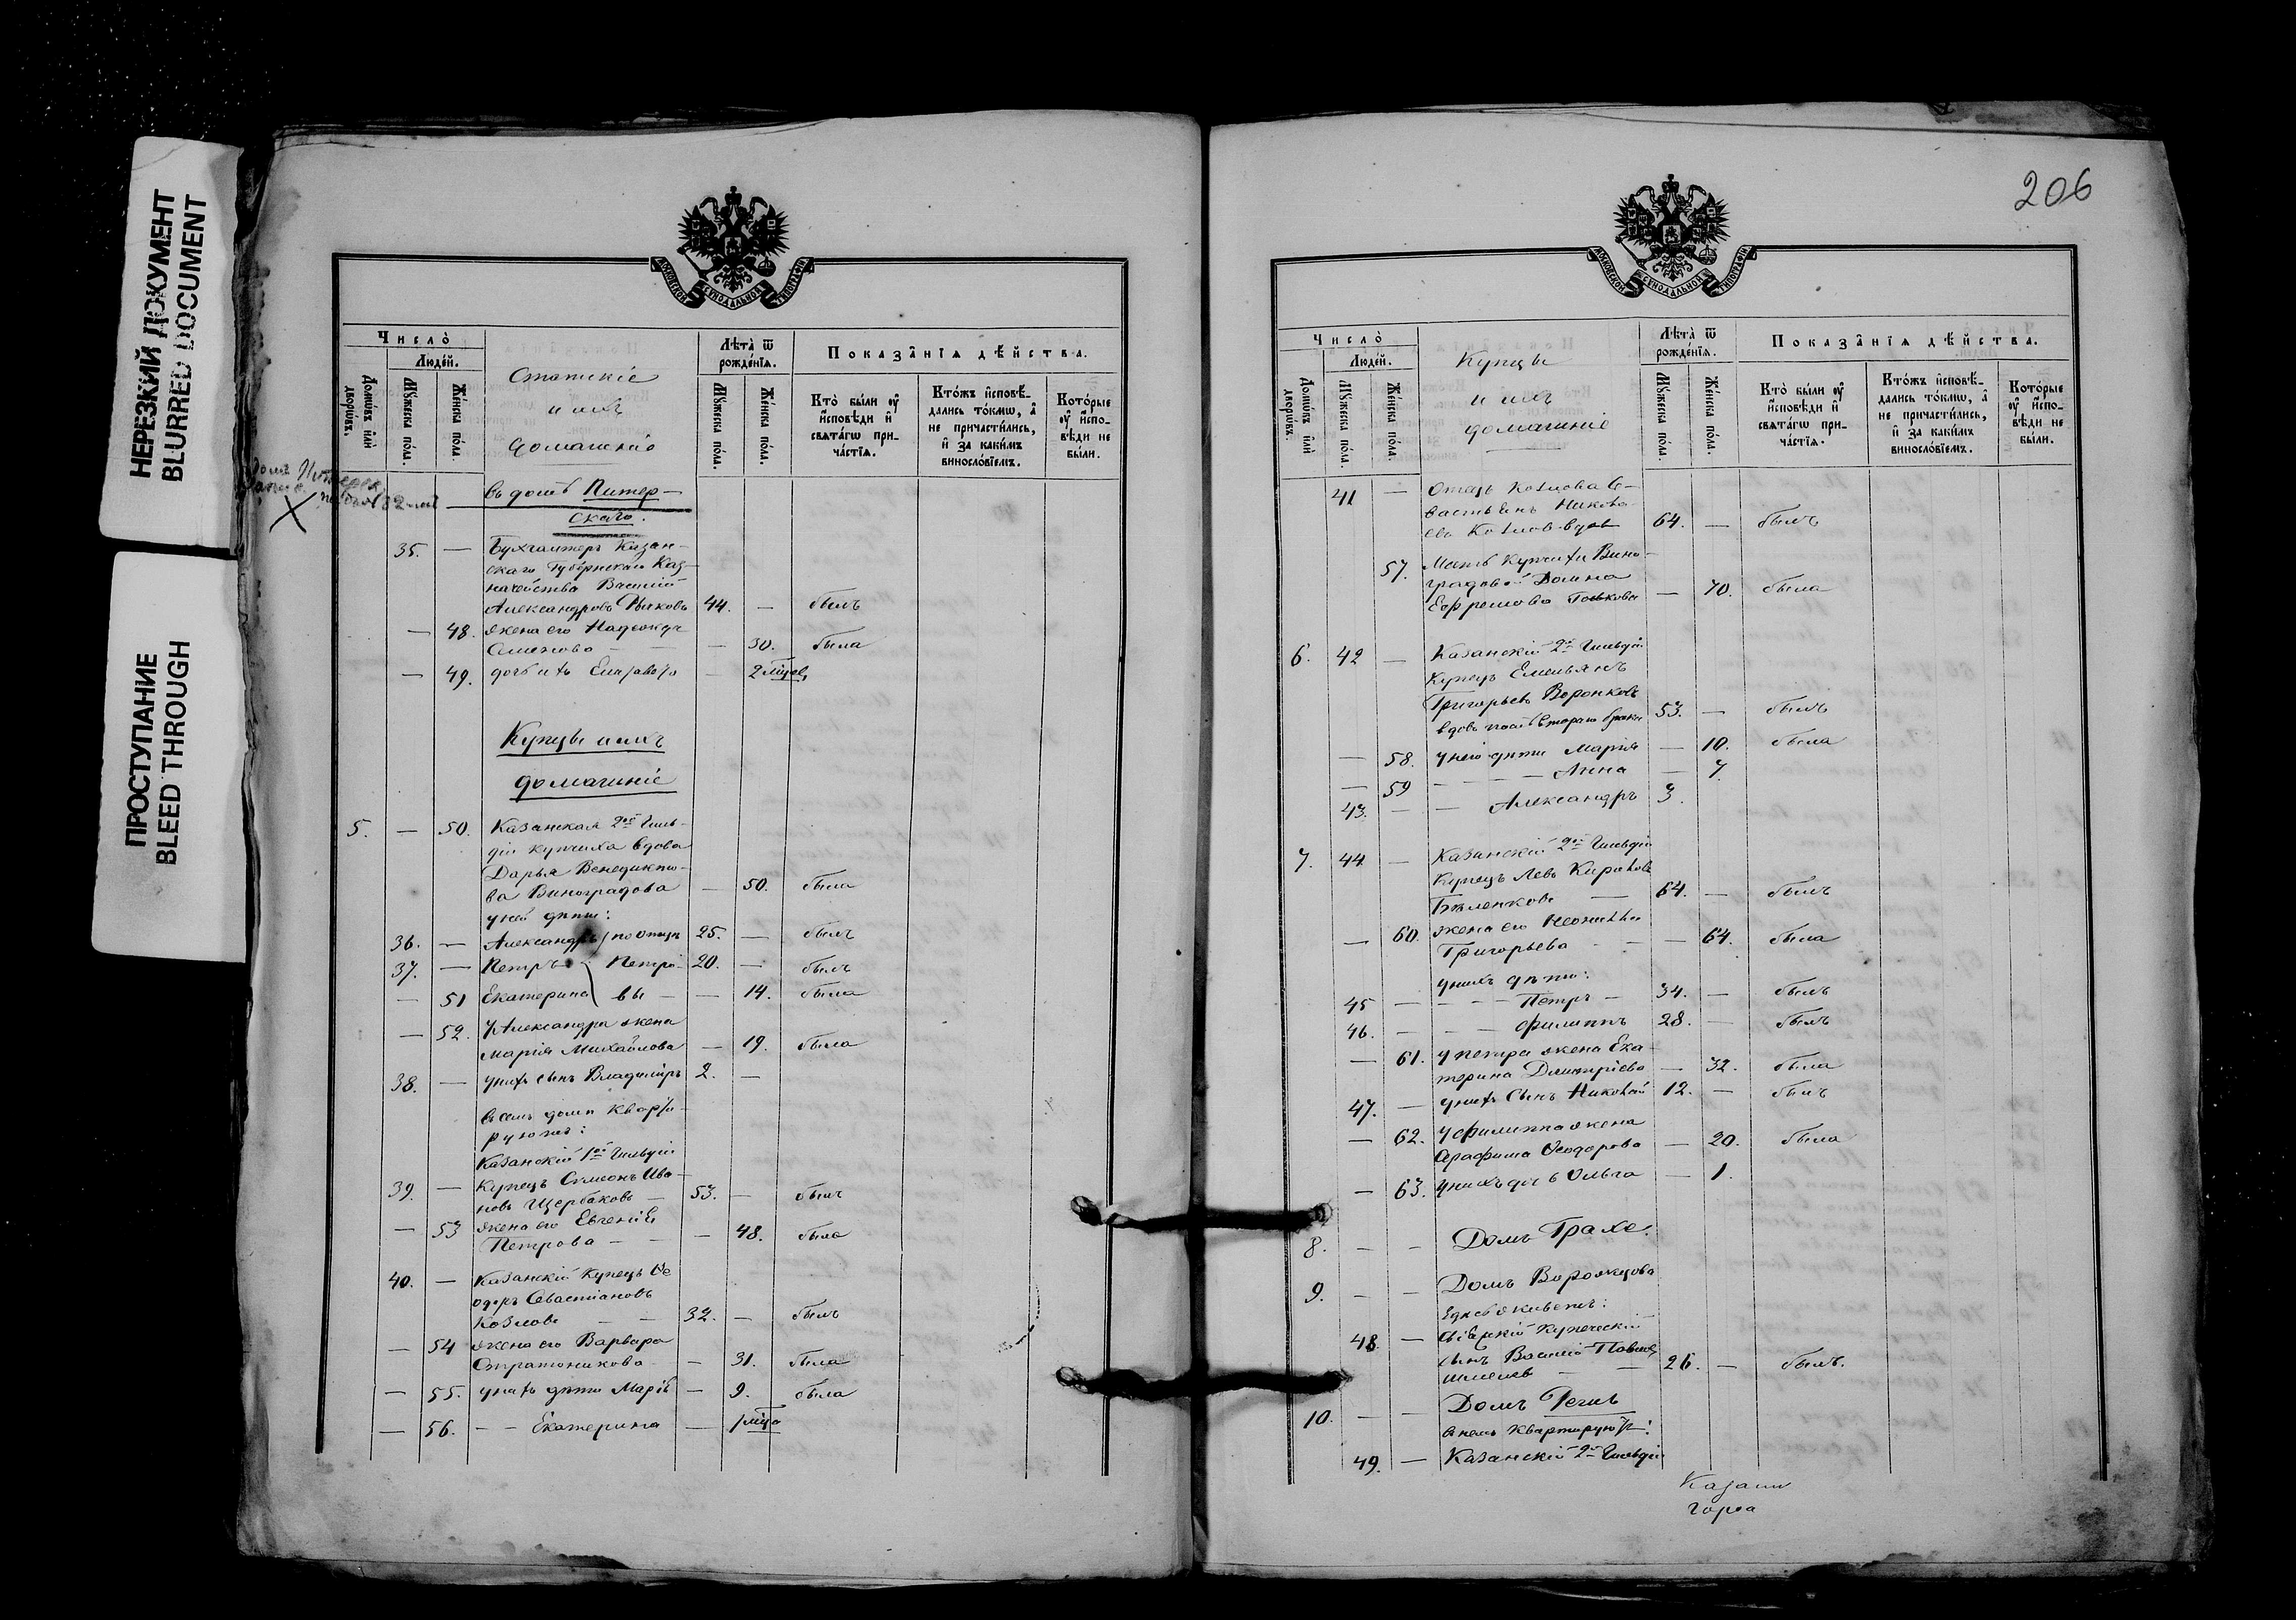 НЕРЕЗКИЙ ДОКУМЕНТ
BLURRED DOCUMENT
ПРОСТУПАНИЕ
BLEED THROUGH
МОСКОВСКОЙ СУНОДАЛЬНОЙ ТИПОГРАФІИ
Число̀
Людей.
Домѡвъ илѝ дворѡвъ.
Мꙋжеска по́ла.
Же́нска по́ла.
Статскіе
и ихъ
домашніе
Лѣта̀ ѿ рожде́нїѧ.
Мꙋжеска по́ла.
Же́нска по́ла.
Показа̑нїѧ дѣ́йства.
Кто̀ бы́ли ᲂу҆ и҆сповѣди и҆ свѧта́гѡ при-
ча́стїѧ.
Кто́жъ и҆сповѣ́-
дались то́кмѡ, а҆
не причасти́лись,
и҆ за каки́мъ
винослові́емъ.
Кото́рые
ᲂу҆ и҆спо-
вѣди не
бы́ли.
въ домѣ Питер-
скаго.
35. — Бухгалтеръ Казан-
скаго Губернскаго Каз-
начейства Василій
Александровъ 44. — былъ
— 48. жена его Надежда
— 30. была
— 49. дочь ихъ Елизавета — 2 мѣсяц.
Купцы и ихъ
домашніе
5. — 50. Казанская 2ой Гиль-
діи купчиха вдова
Дарья Венедикто-
ва Виноградова — 50. была
у ней дѣти:
36. — Александръ по отцу 25. — былъ
37. — Петръ Петро- 20. — былъ
— 51 Екатерина вы — — 14. была
— 52. У Александра жена
Марія Михайлова — 19. была
38. — у нихъ сынъ Владиміръ 2. —
въ семъ доми кварти-
руютъ:
Казанскій 1ой Гильдіи
39. — Купецъ Симеонъ Ива-
новъ Щербаковъ — 53. — былъ
— 53 жена его Евгенія
Петрова — — 48. была
40. — Казанскій Купецъ Ѳе
одоръ Севастіановъ
Козловъ — 32. — былъ
— 54 жена его Варвара
Стратоникова — 31. была
— 55. у нихъ дѣти Марія — 9. была
— 56. — — Екатерина — 1 мѣся
206
МОСКОВСКОЙ СУНОДАЛЬНОЙ ТИПОГРАФІИ
Число̀
Людей.
Домѡвъ илѝ дворѡвъ.
Мꙋжеска по́ла.
Же́нска по́ла.
Купцы
и ихъ
домашніе
Лѣта̀ ѿ рожде́нїѧ.
Мꙋжеска по́ла.
Же́нска по́ла.
Показа̑нїѧ дѣ́йства.
Кто̀ бы́ли ᲂу҆ и҆сповѣди и҆ свѧта́гѡ при-
ча́стїѧ.
Кто́жъ и҆сповѣ́-
дались то́кмѡ, а҆
не причасти́лись,
и҆ за каки́мъ
винослові́емъ.
Кото́рые
ᲂу҆ и҆спо-
вѣди не
бы́ли.
41 — Отецъ Козлова Се-
вастьянъ Никола-
евъ Козловъ вдов 64. — былъ
57. Мать Купчихи Вино-
градовой Домна
Ефремова — 70. была
6. 42 — Казанскій 2й Гильдіи
Купецъ Емельянъ
Григорьевъ Воронковъ
вдовъ послѣ втораго брака 53. — былъ
— 58. у него дѣти Марія — 10. была
— 59 — — Анна — 7.
43. — — Александръ 3.
7. 44 — Казанскій 2ой Гильдіи
Купецъ Левъ Кириловъ
Бѣленковъ — 64. — былъ
— 60. жена его Неонила
Григорьева — — 64. была
у нихъ дѣти:
45 — — — Петръ — 34. — былъ
46. — — — Филиппъ 28. — былъ
— 61. у Петра жена Ека-
терина Димитріева — 32. была
47. — у нихъ сынъ Николай 12. — былъ
— 62. у Филиппа жена
Арафима Ѳеодорова — 20. была
— 63. у нихъ дочь Ольга — 1.
8. — — Домъ Грахе.
9. — — Домъ Ворожцова
гдѣ живетъ:
48. — купеческій
сынъ Василій Павлов
26. — былъ.
10. — — Домъ
въ немъ Квартируютъ:
49. — Казанскій 2й Гильдіи
Казани
города